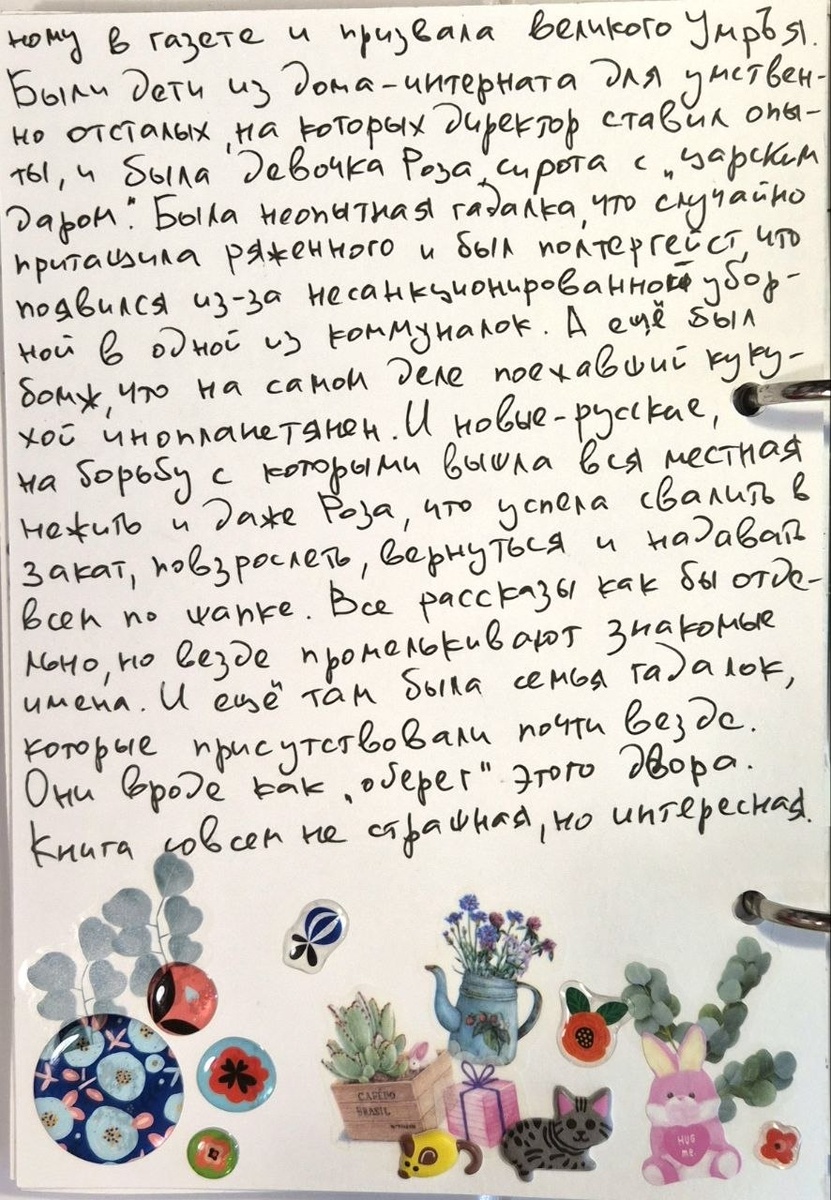 ному в газете и призвала великого Умръя.
Были дети из дома-интерната для умствен-
но отсталых, на которых директор ставил опы-
ты, и была девочка Роза, сирота с „царским
даром". Была неопытная гадалка, что случайно
притащила ряженного и был полтергейст, что
появился из-за несанкционированной убор-
ной в одной из коммуналок. А ещё был
бомж, что на самом деле поехавший куку-
хой инопланетянен. И новые-русские,
на борьбу с которыми вышла вся местная
нежить и даже Роза, что успела свалить в
закат, повзрослеть, вернуться и надавать
всем по шапке. Все рассказы как бы отде-
льно, но везде промелькивают знакомые
имена. И ещё там была семья гадалок,
которые присутствовали почти везде.
Они вроде как „оберег" этого двора.
Книга совсем не страшная, но интересная.
CAFÉ DO
BRASIL
HUG
ME